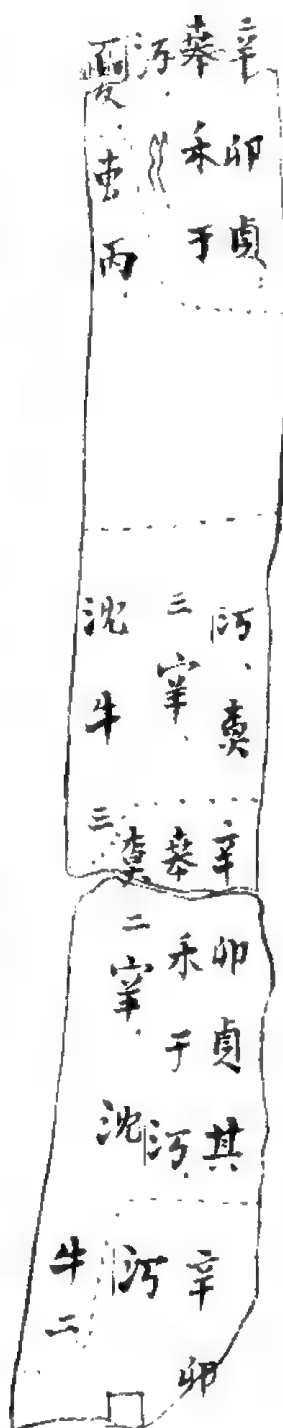 辛卯貞
𠦪禾于
河
夒.叀丙.
河.尞
三𫳅.
沈牛
三
辛卯貞其
𠦪禾于河.
尞二𫳅.沈
牛二
辛卯
河